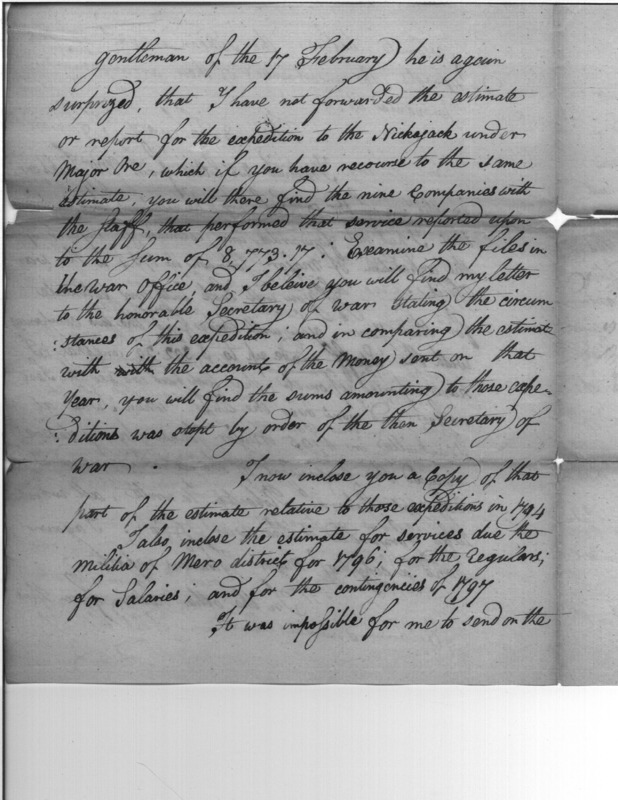 gentleman of the 17 February) he is again
surprized, that I have not forwarded the estimate
or report for the expedition to the Nickajack under
Major Ore, which if you have recourse to the same
estimate, you will there find the nine Companies with
the staff, that performed that service reported upon
to the sum of 8,773:17: Examine the files in
the war office, and I beleive you will find my letter
to the honorable Secretary of war stating the circum
:stances of this expedition; and in comparing the estimate
with with the account of the Money sent on that
year, you will find the sums amounting to those expe-
:ditions was stopt by order of the then Secretary of
war. I now inclose you a Copy of that
part of the estimate relative to those expeditions in 1794
I also inclose the estimate for services due the
militia of Mero district for 1796; for the regulars;
for Salaries; and for the contingencies of 1797
It was impossible for me to send on the